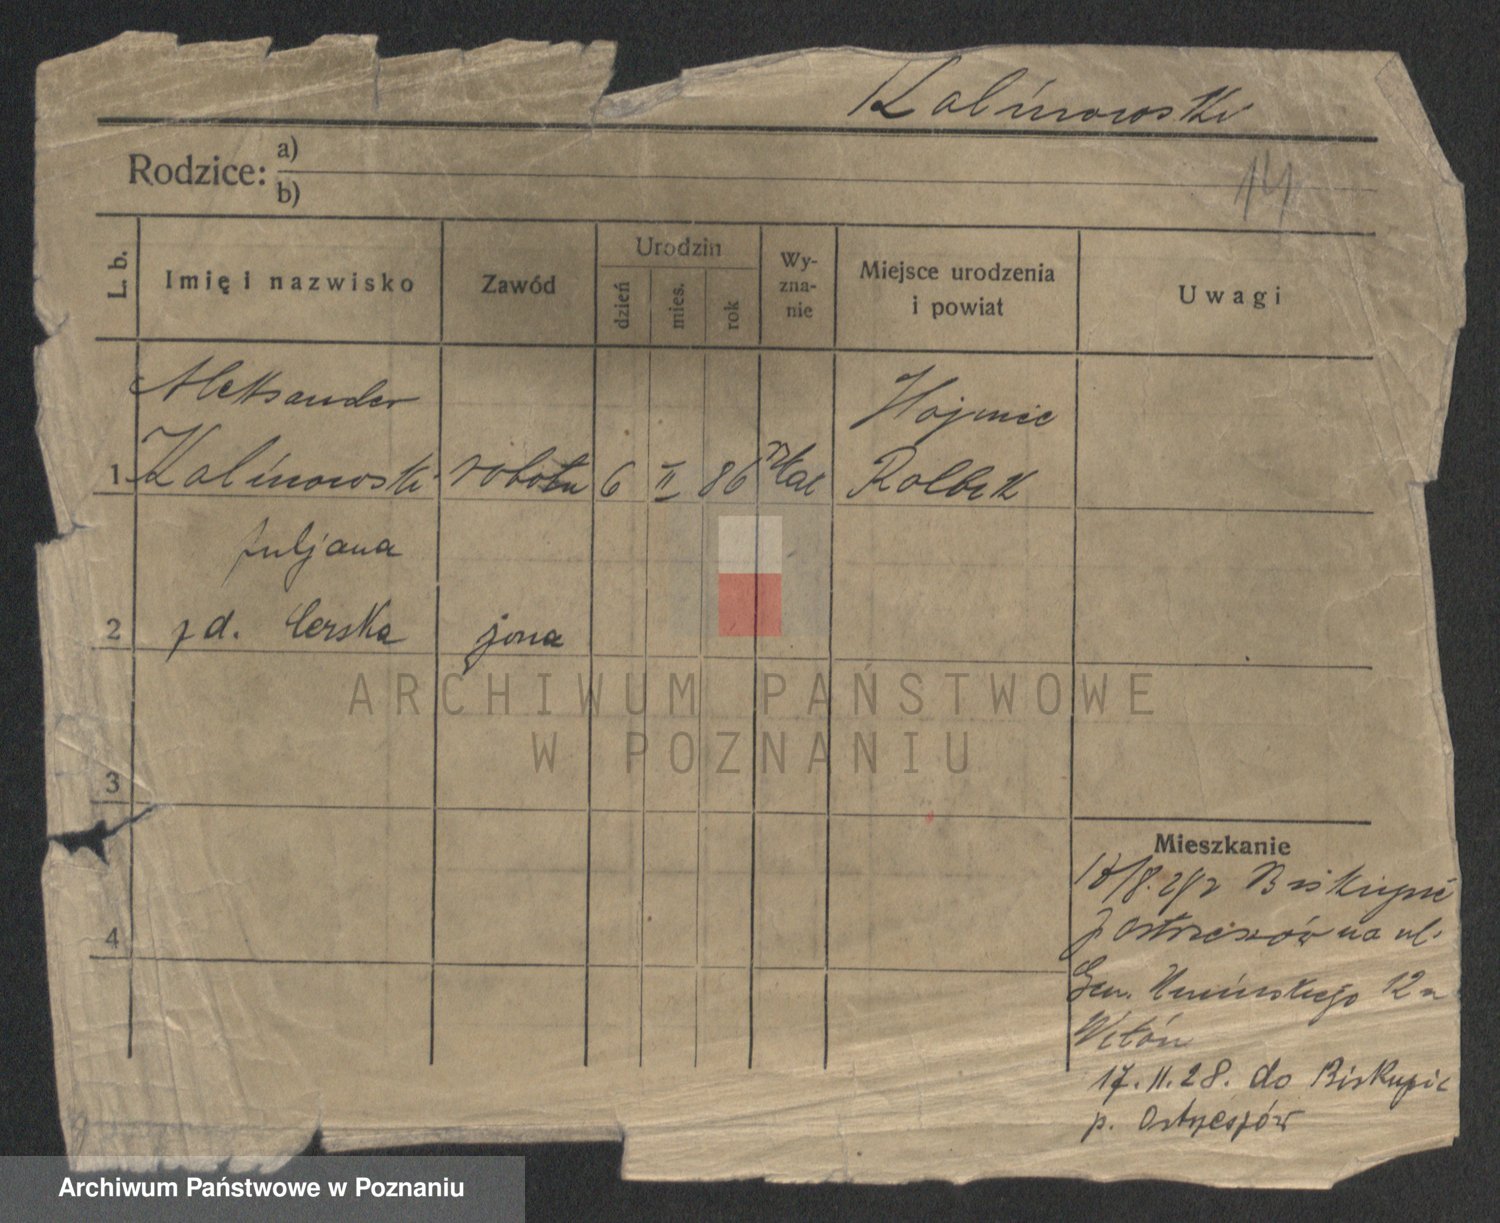 Kalinowski
Rodzice: a)
b)
14
L. b.
Imię i nazwisko
Zawód
Urodzin
dzień
mies.
rok
Wy-
zna-
nie
Miejsce urodzenia
i powiat
Uwagi
Aleksander
1 Kalinowski robotn 6 II 86 rz kat
2
Juljana
zd. Cerska
żona
3
4
Mieszkanie
z Biskupic
p Ostrzeszów na ul.
Gen. Umińskiego 12 u
Witón
17.11.28. do Biskupic
p. Ostrzeszów
ARCHIWUM PAŃSTWOWE
W POZNANIU
Archiwum Państwowe w Poznaniu